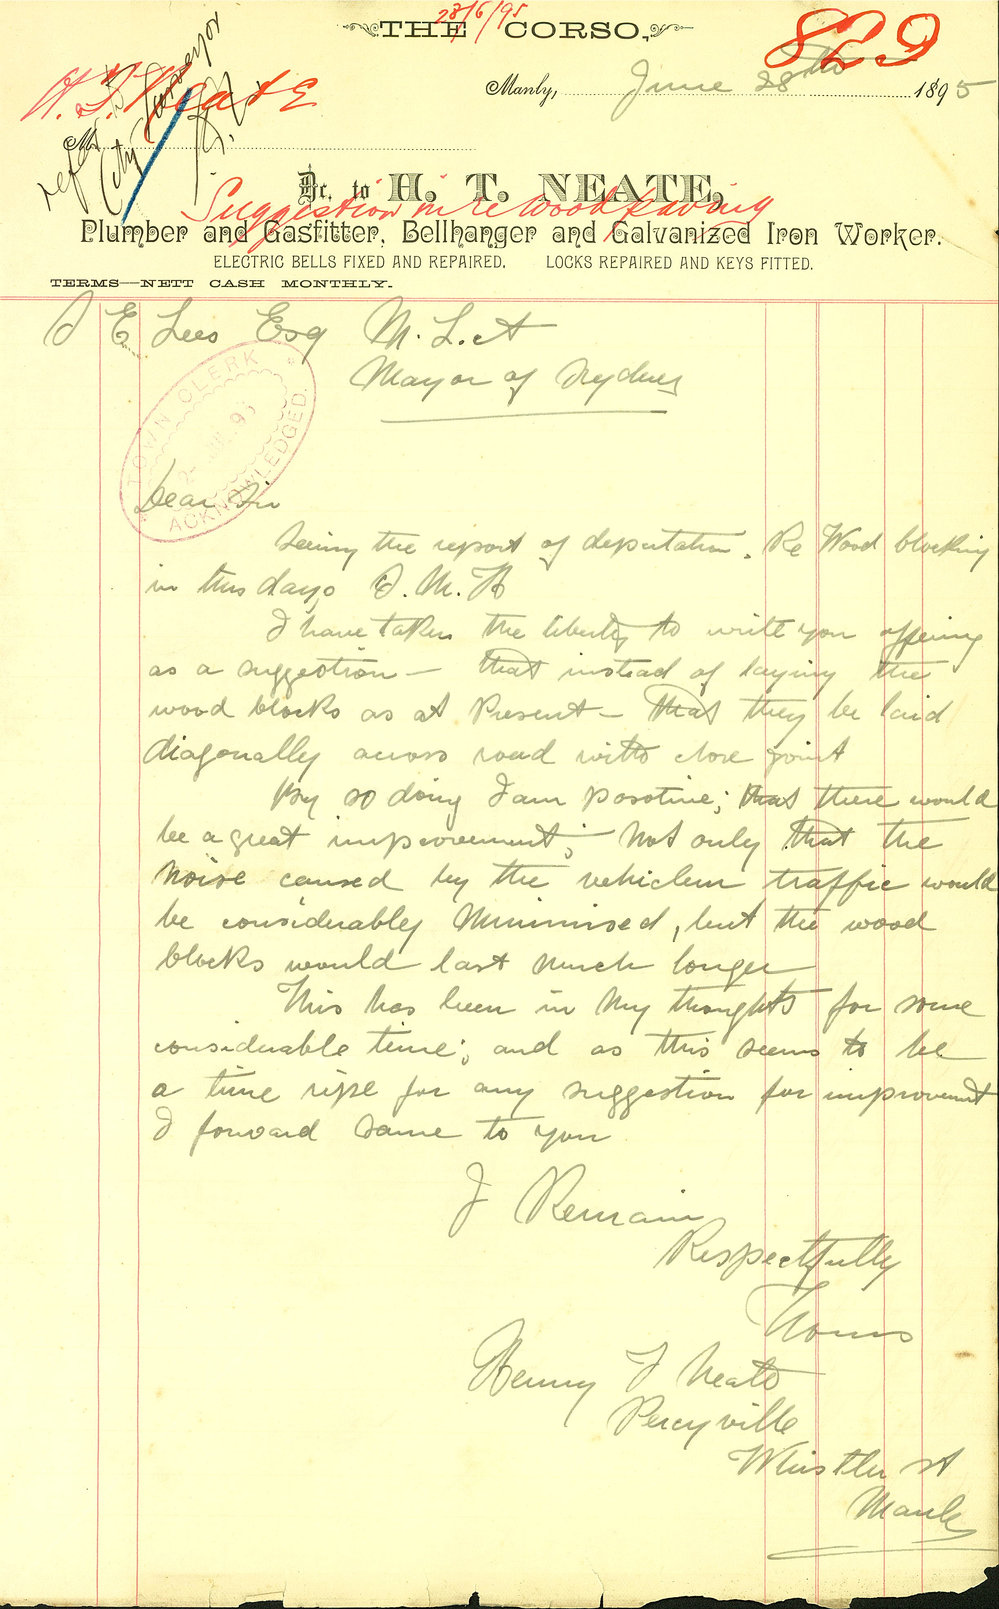 28/6/95
THE CORSO,
829
H. T. Neate
Manly, June 28th 1895
refer to
City Surveyor
Mr
Dr. to H. T. NEATE,
Suggestion in re wood paving
Plumber and Gasfitter, Bellhanger and Galvanized Iron Worker.
ELECTRIC BELLS FIXED AND REPAIRED. LOCKS REPAIRED AND KEYS FITTED.
TERMS—NETT CASH MONTHLY.
S E Lees Esq M.L.A
Mayor of Sydney
TOWN CLERK
ACKNOWLEDGED.
Dear Sir
Seeing the report of deputation. Re Wood blocking
in this days S.M.H
I have taken the liberty to write you offering
as a suggestion - that instead of laying the
wood blocks as at Present - that they be laid
diagonally across road with close joint
By so doing I am posotive; that there would
be a great improvement; not only that the
noise caused by the vehicleur traffic would
be considerably minimised, but the wood
blocks would last much longer
This has been in my thoughts for some
considerable time; and as this seems to be
a time ripe for any suggestion for improvement
I forward same to you
I Remain
Respectfully
Yours
Henry T Neate
Percyville
Whistler St
Manly